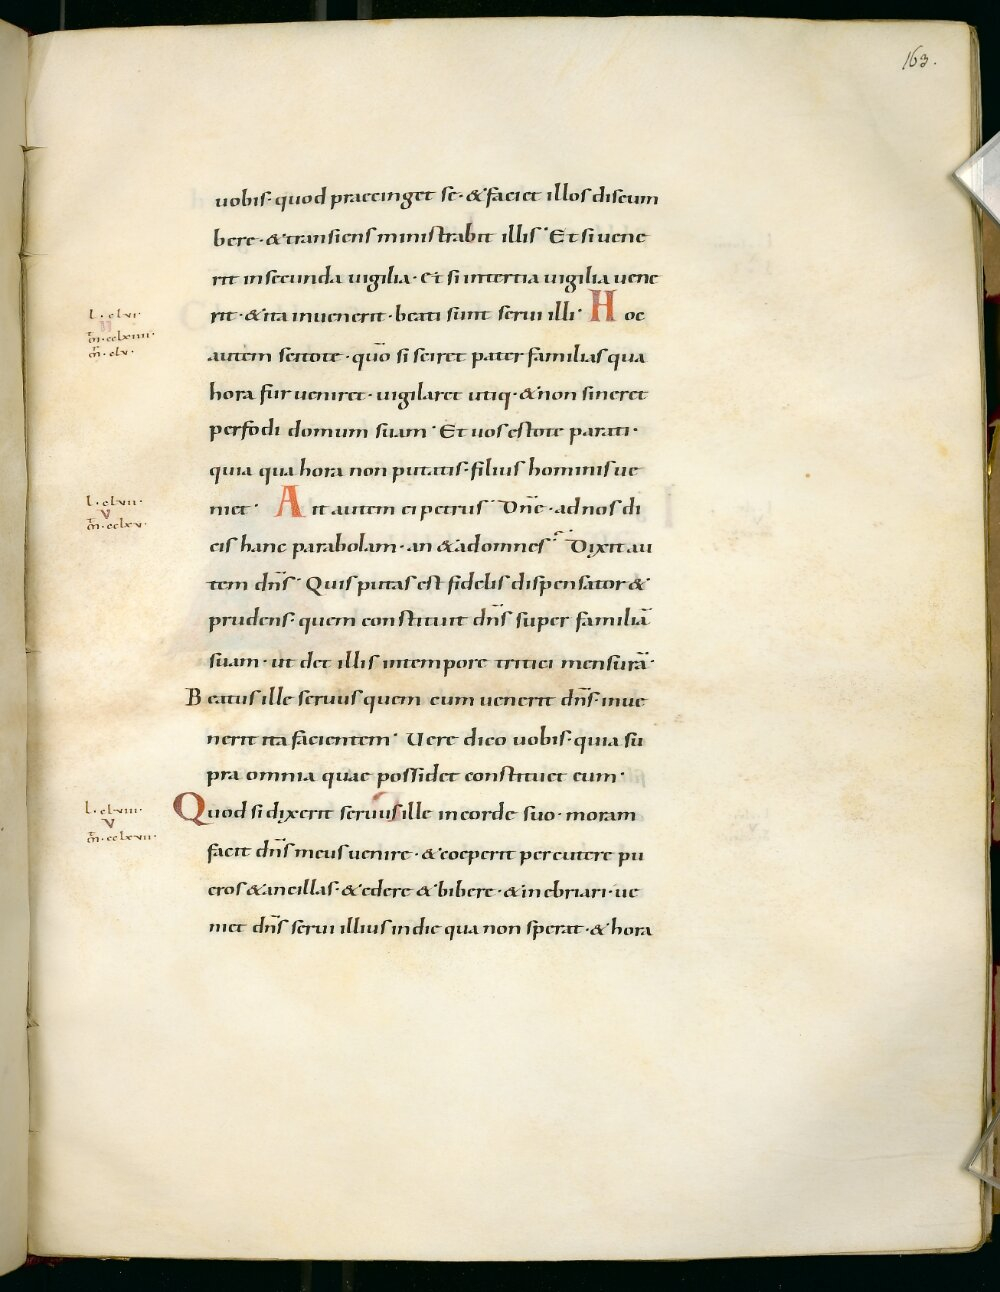 163.
uobis· quod praecinget se· & faciet illos discum
bere· & transiens ministrabit illis· Et si uene
rit in secunda uigilia· et si in tertia uigilia uene
rit· & ita inuenerit· beati sunt serui illi· Hoc
autem scitote· quō si sciret pater familias qua
hora fur ueniret· uigilaret utiq· & non sineret
perfodi domum suam· Et uos estote parati·
quia qua hora non putatis· filius hominis ue
niet· Ait autem ei petrus· Dn̄e· ad nos di
cis hanc parabolam· an & ad omnes· Dixit au
tem dn̄s· Quis putas est fidelis dispensator &
prudens· quem constituit dn̄s super familiā
suam· ut det illis in tempore tritici mensurā·
Beatus ille seruus quem cum uenerit dn̄s· inue
nerit ita facientem· Uere dico uobis· quia su
pra omnia quae possidet constituet eum·
Quod si dixerit seruus ille in corde suo· moram
facit dn̄s meus uenire· & coeperit percutere pu
eros & ancillas· & edere & bibere· & inebriari· ue
niet dn̄s serui illius in die qua non sperat· & hora
L· clvi·
II
m̄· cclxiiii·
m̄· clv·
L· clvii·
V
m̄· cclxv·
L· clviii·
V
m̄· cclxvii·